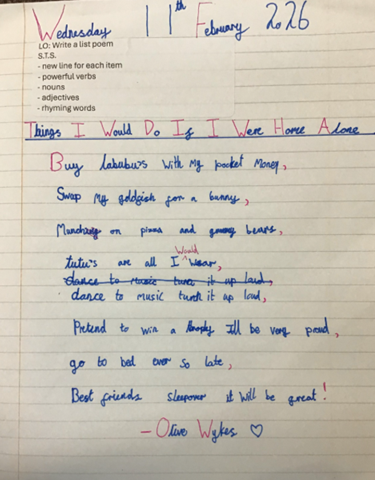 Wednesday 11th February 2026
LO: Write a list poem
S.T.S.
- new line for each item
- powerful verbs
- nouns
- adjectives
- rhyming words
Things I Would Do If I Were Home Alone
Buy labubus with my pocket money,
Swap my goldfish for a bunny,
Munching on pizza and gummy bears,
tutu's are all I would wear,
dance to music turn it up loud,
dance to music turn it up loud,
Pretend to win a trophy I'll be very proud,
go to bed ever so late,
Best friends sleepover it will be great!
- Olive Wykes ♡